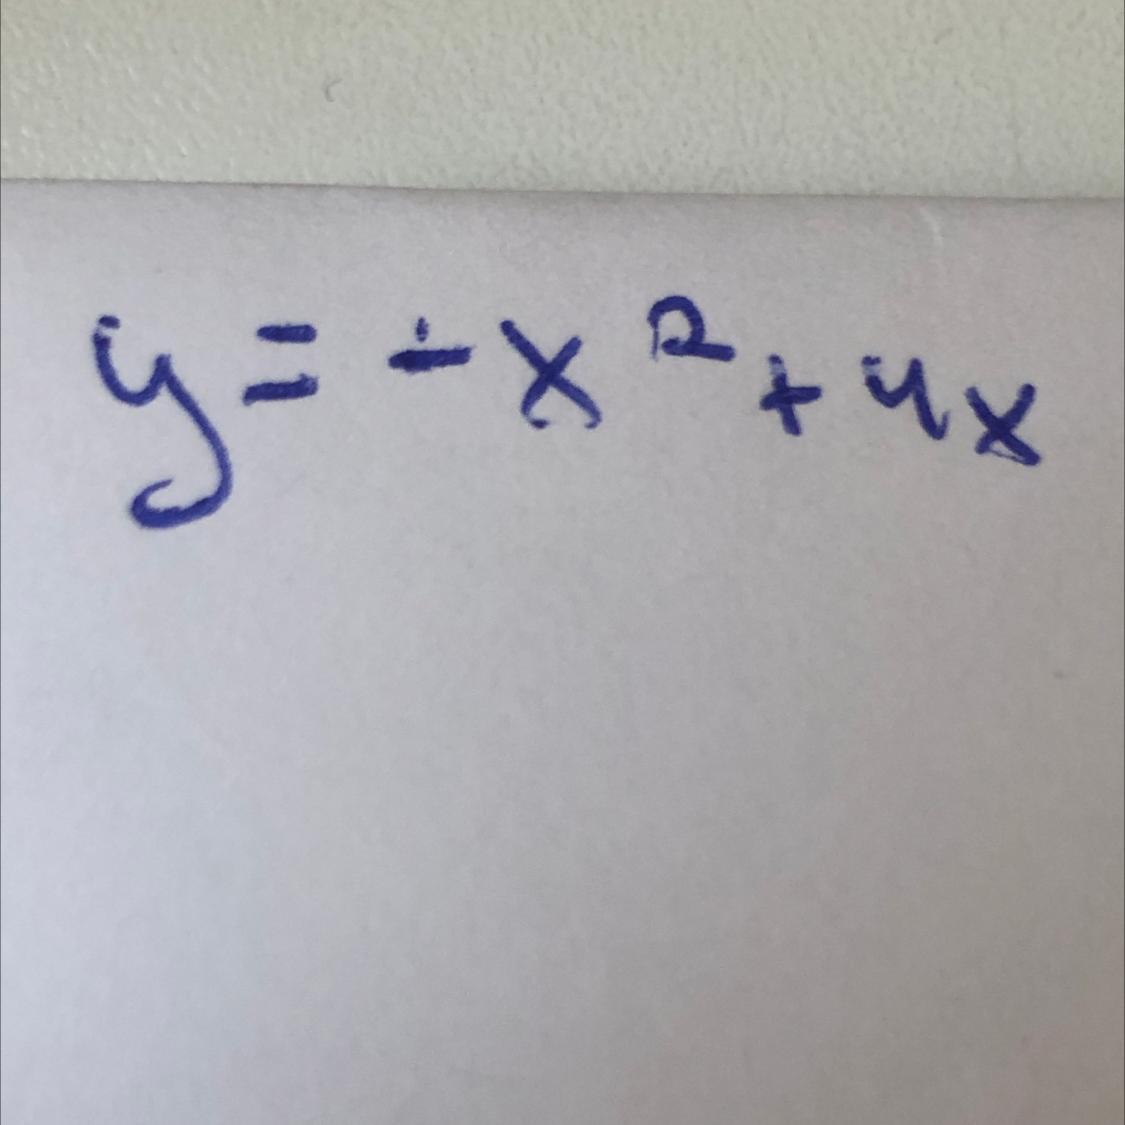 y = -x² + 4x